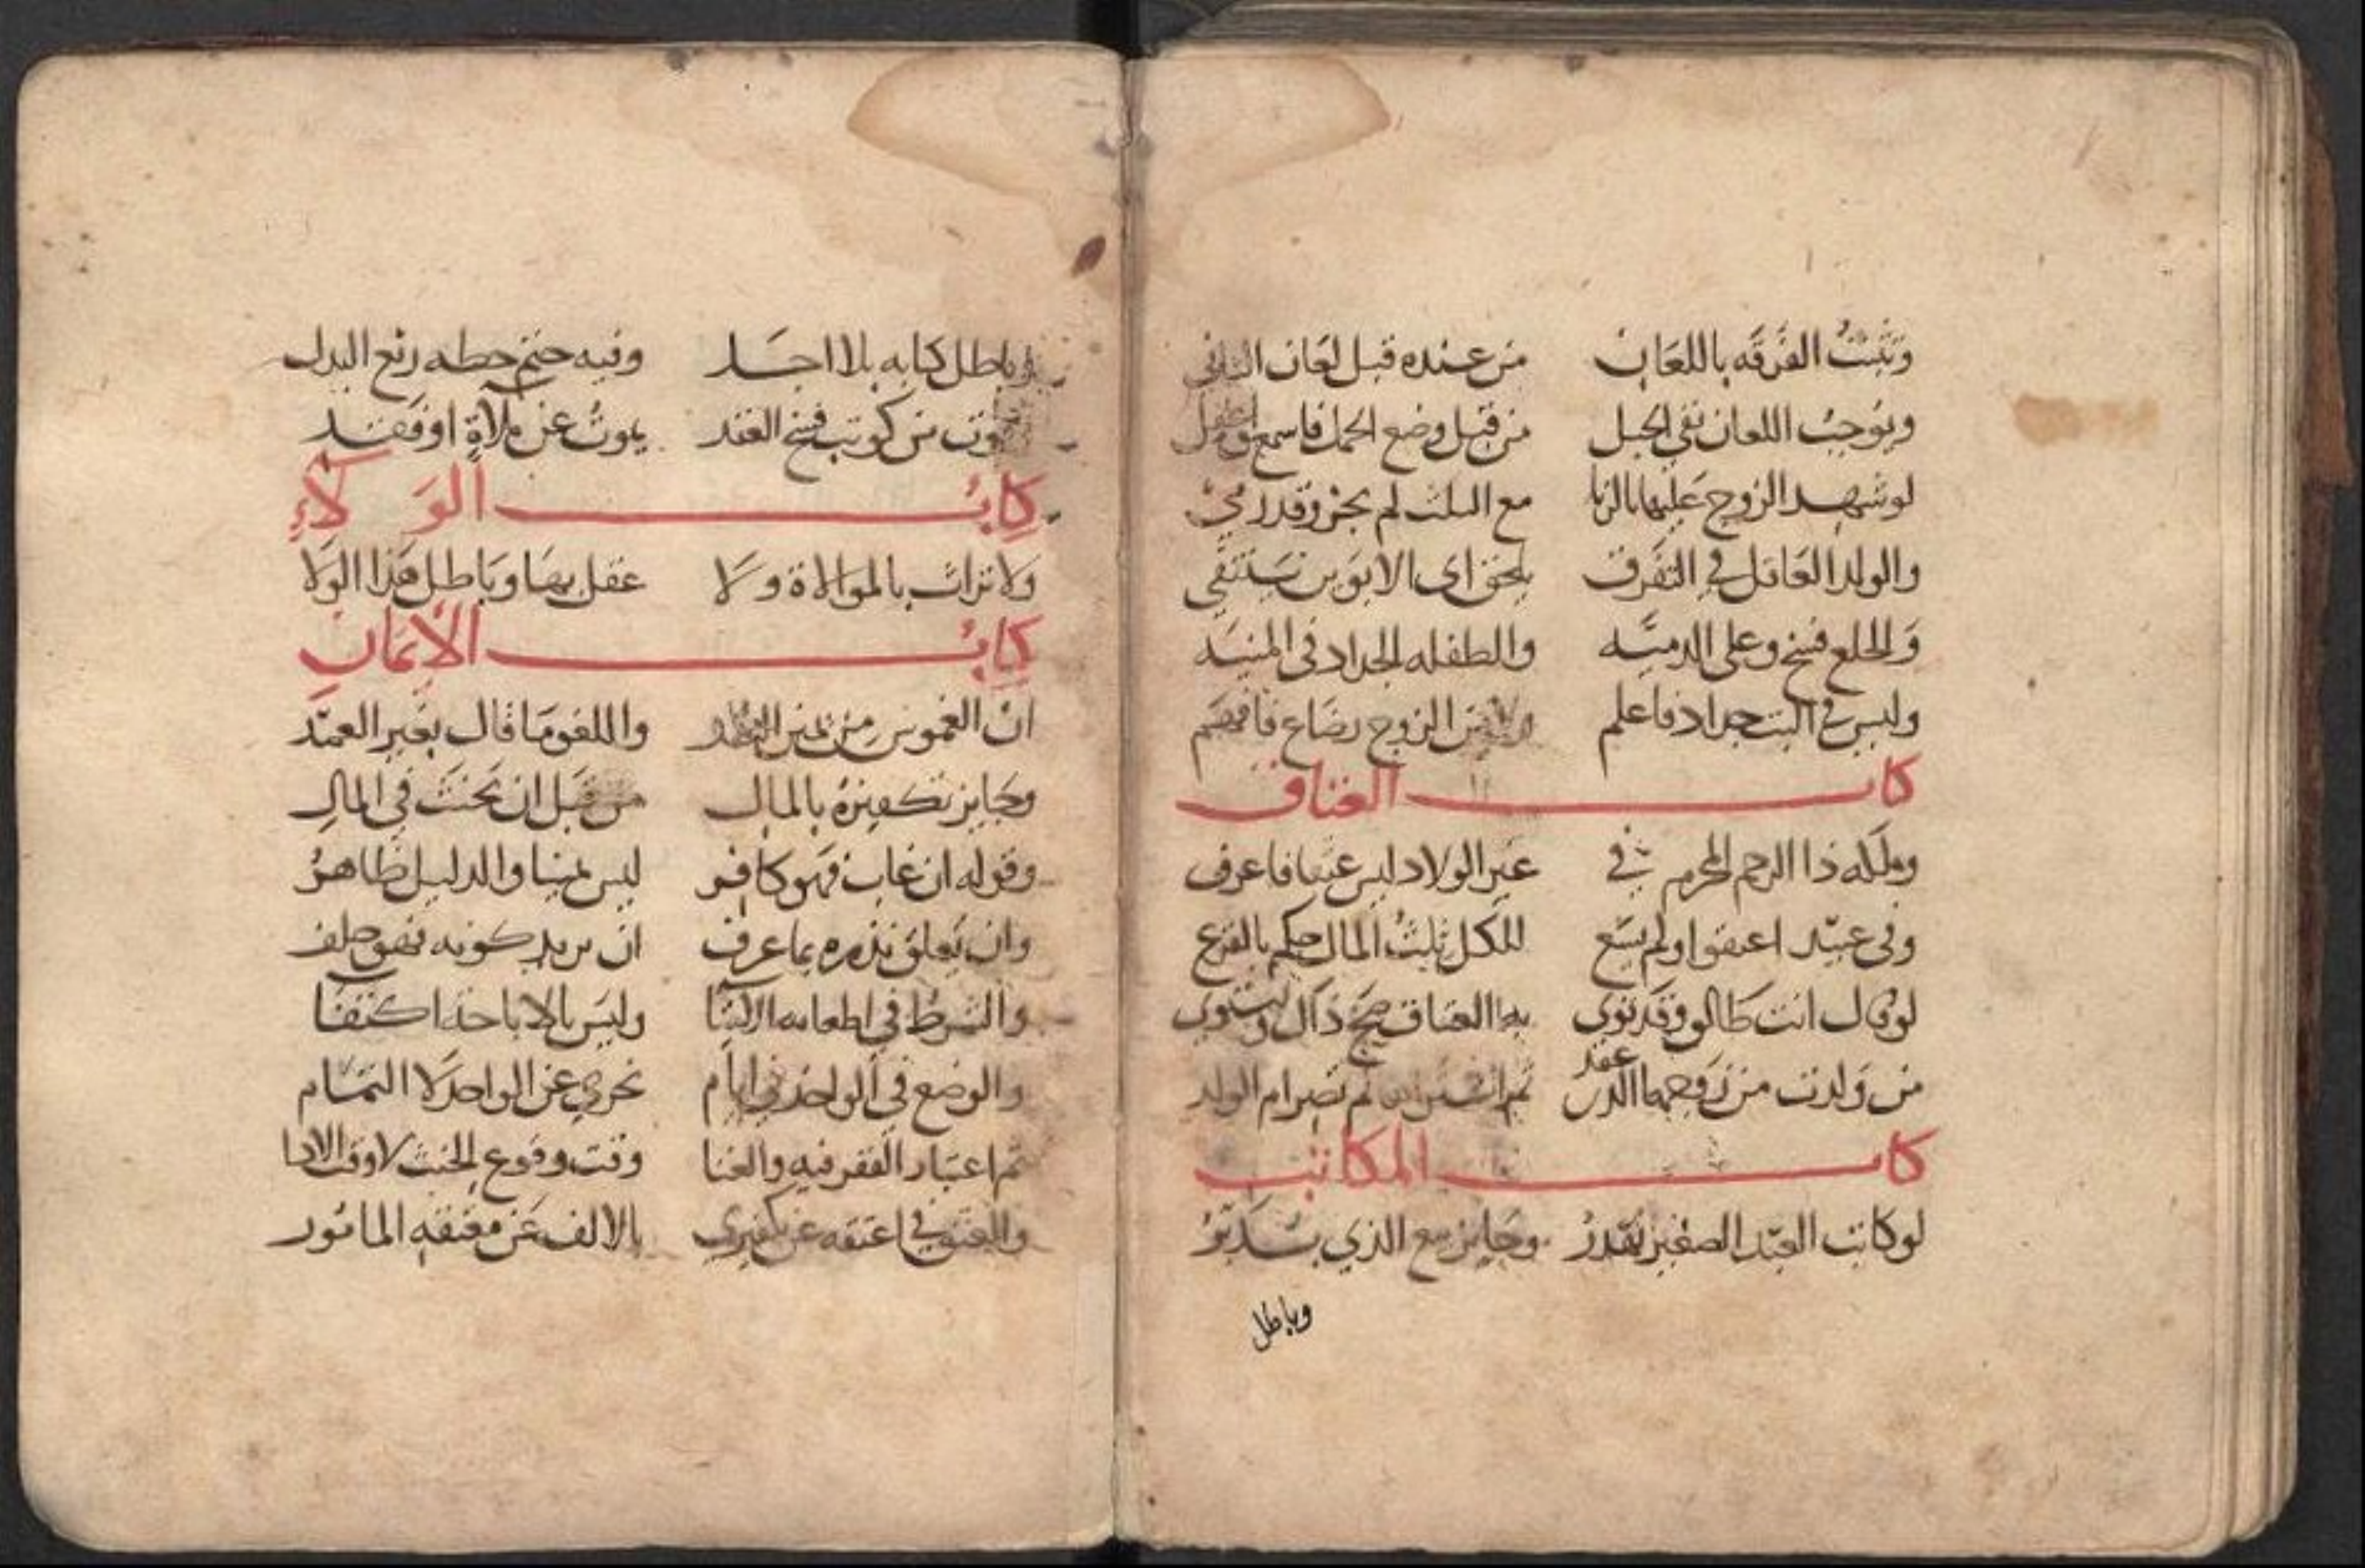 وتثبت الفرقه باللعان من عنده قبل لعان الثاني
ويوجب اللعان نفي الحبل من قبل وضع الحمل فاسمع
لو شهد الزوج عليها بالزنا مع الثلث لم يجز وقد
والولد العاقل في التفرق يلحق اي الابوين ينتقي
والخلع فسخ وعلى الذميه والطفله الحداد في المنيه
وليس في البت حداد فاعلم الزوج رضاع فافهم
كتاب العتاق
وملكه ذا الرحم المحرم في غير الولاد ليس عتقا فاعرف
وفي عبيد اعتقوا ولم يسع للكل ثلث المال حكم بالقرع
لو قال انت طالق وقد نوى به العتاق صح ذاك
من ولدت من زوجها عقد لم تصر ام الولد
كتاب المكاتب
لو كاتب العبد الصغير يهدر وجايز مع الذي يدبر
وباطل
وباطل كتابه بلا اجل وفيه حتم حطه ربع البدل
من كوتب فسخ العقد يموت عن ملاة او فقد
كتاب الولاء
ولا تراث بالموالاة ولا عقل بها وباطل هذا الولا
كتاب الايمان
ان الغموس من يمين واللغو ما قال بغير العمد
وجايز تكفيره بالمال من قبل ان يحنث في المال
وقوله ان غاب فهو كافر ليس يمينا والدليل ظاهر
وان تعلق نذره بما عرف ان يريد كونه فهو حلف
والشرط في اطعامه وليس بالاباحة اكتفا
والوضع في الواحد في ايام تجري عن الواحد لا التمام
ثم اعتبار الفقر فيه والغنا وقت وقوع الحنث لا وقت الادا
والعتق في اعتقه عن تكفيري بالالف عن معتقه المامور